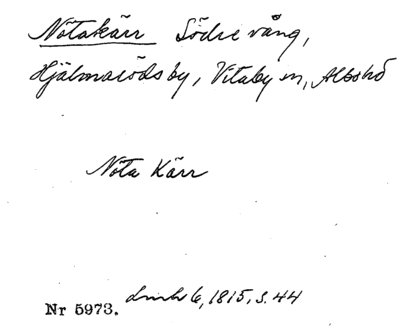 Nötakärr Södre vång,
Hjälmaröds by, Vitaby sn, Albo hd
Nöta Kärr
Nr 5973. lmh 6, 1815, s. 44